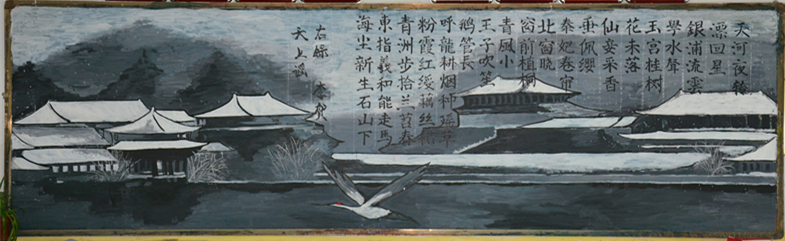 天河夜轉
漂回星
銀浦流雲
學水聲
玉宮桂樹
花未落
仙妾采香
垂佩纓
秦妃卷帘
北窗曉
窗前植桐
青鳳小
王子吹笙
鵝管長
呼龍耕烟種瑶草
粉霞紅綬藕丝裙
青洲步拾兰苕春
東指羲和能走馬
海尘新生石山下
右録 李贺
天上謠